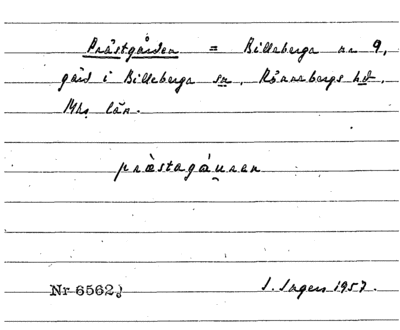 Prästgården = Billeberga nr 9,
gård i Billeberga sn, Rönnebergs hd,
Mhs län.
prästagá̀u̯ren
Nr 6562
I. Ingers 1957.